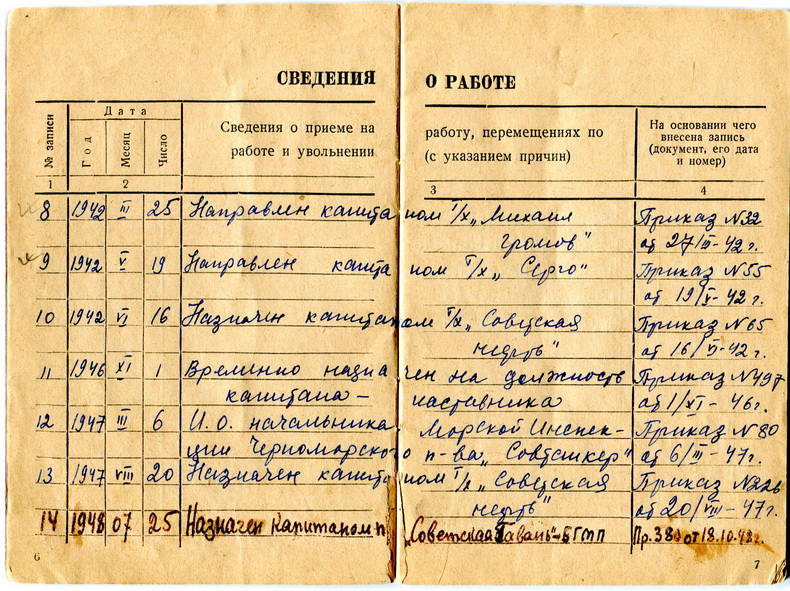 СВЕДЕНИЯ О РАБОТЕ
№ записи
Дата
Год
Месяц
Число
Сведения о приеме на работу, перемещениях по
работе и увольнении (с указанием причин)
На основании чего
внесена запись
(документ, его дата
и номер)
1 2 3 4
8 1942 III 25 Направлен капитаном т/х „Михаил Приказ N32
громов" от 27/III-42 г.
9 1942 V 19 Направлен капитаном т/х „Серго" Приказ N55
от 19/V-42 г.
10 1942 VI 16 Назначен капитаном т/х „Советская Приказ N65
нефть" от 16/VI-42 г.
11 1946 XI 1 Временно назначен на должность Приказ N497
капитана- наставника от 1/XI-46 г.
12 1947 III 6 И.О. начальника Морской Инспек- Приказ N80
ции Черноморского п-ва „Совтанкер" от 6/III-47 г.
13 1947 VIII 20 Назначен капитаном т/х „Советская Приказ N226
нефть" от 20/VIII-47 г.
14 1948 07 25 Назначен капитаном п „Советская Гавань"-БГМП Пр. 380 от 18.10.48 г.
6 7